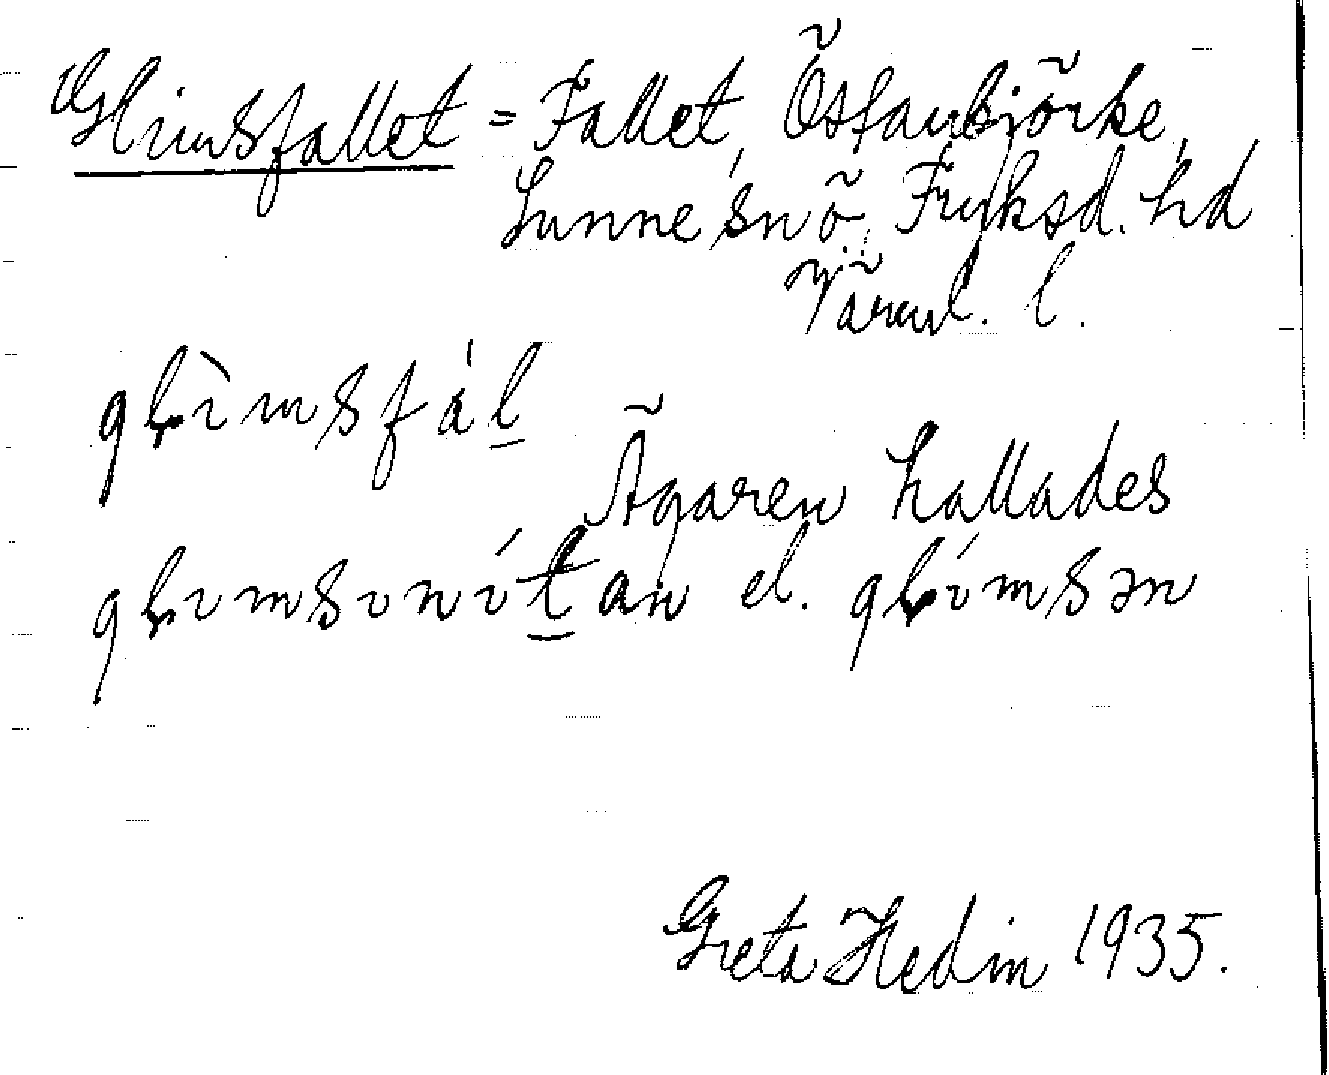 Glimsfallet = Fallet, Östanbjörke,
Sunne sn ö., Fryksd. hd
Värml. l.
gɽìmsfál̲
Ägaren kallades
gɽımsınít̲an el. gɽímsən
Greta Hedin 1935.